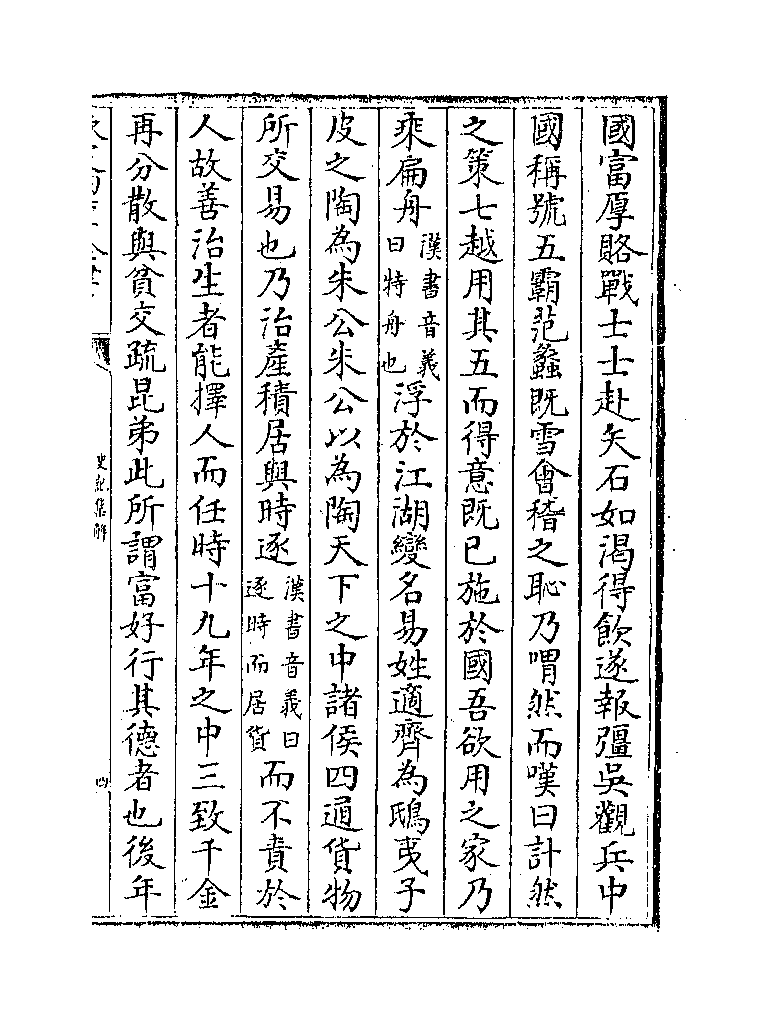 國富厚賂戰士士赴矢石如渴得飲遂報彊吳觀兵中
國稱號五霸范蠡既雪會稽之恥乃喟然而嘆曰計然
之策七越用其五而得意既已施於國吾欲用之家乃
乘扁舟漢書音義曰特舟也浮於江湖變名易姓適齊為鴟夷子
皮之陶為朱公朱公以為陶天下之中諸侯四通貨物
所交易也乃治產積居與時逐漢書音義曰逐時而居貨而不責於
人故善治生者能擇人而任時十九年之中三致千金
再分散與貧交疏昆弟此所謂富好行其德者也後年
史記集解
四